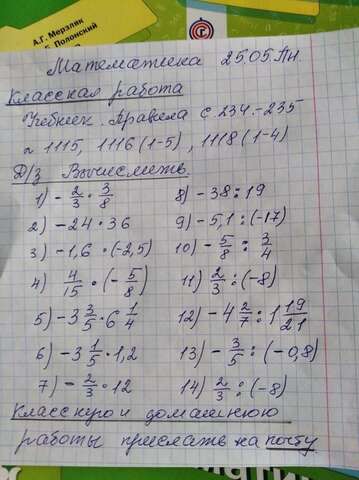 А.Г. Мерзляк
Б. Полонский
Математика 25 05 Пн.
Классная работа
Учебник. Правила с 234.-235
№ 1115, 1116 (1-5), 1118 (1-4)
Д/з Вычислить.
1) - 2/3 · 3/8
2) - 24 · 36
3) - 1,6 · (-2,5)
4) 4/15 · (- 5/8)
5) - 3 3/5 · 6 1/4
6) - 3 1/5 · 1,2
7) - 2/3 · 12
8) - 38 : 19
9) - 5,1 : (-17)
10) - 5/8 : 3/4
11) 2/3 : (-8)
12) - 4 2/7 : 1 19/21
13) - 3/5 : (-0,8)
14) 2/3 : (-8)
Классную и домашнюю
работы прислать на почту.